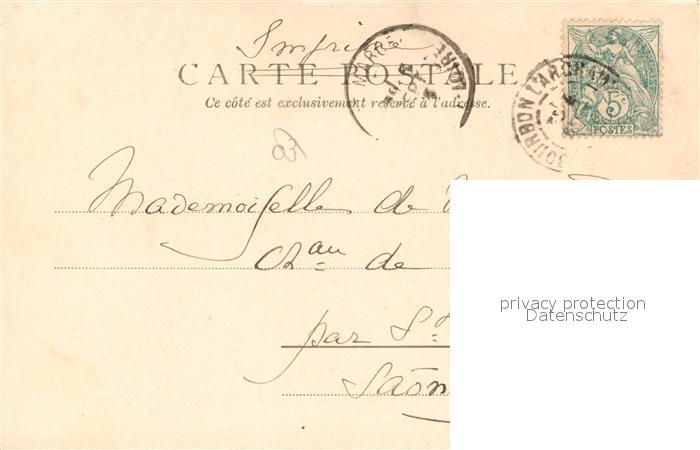 Imprimé
CARTE POSTALE
Ce côté est exclusivement réservé à l'adresse.
BOURBON L'ARCH
5c
POSTES
Mademoiselle de
Ch^au de
par S^t
Saôn
privacy protection
Datenschutz